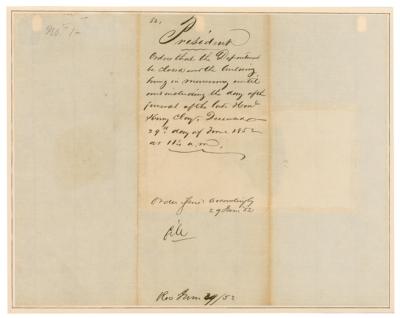 No. 1
President
Orders that the Department
be closed and the building
hung in mourning until
and including the day of the
funeral of the late Honl.
Henry Clay, Deceased
29th day of June 1852
at 11½ a.m.
Order given accordingly
29 June 52
Rec June 29/52